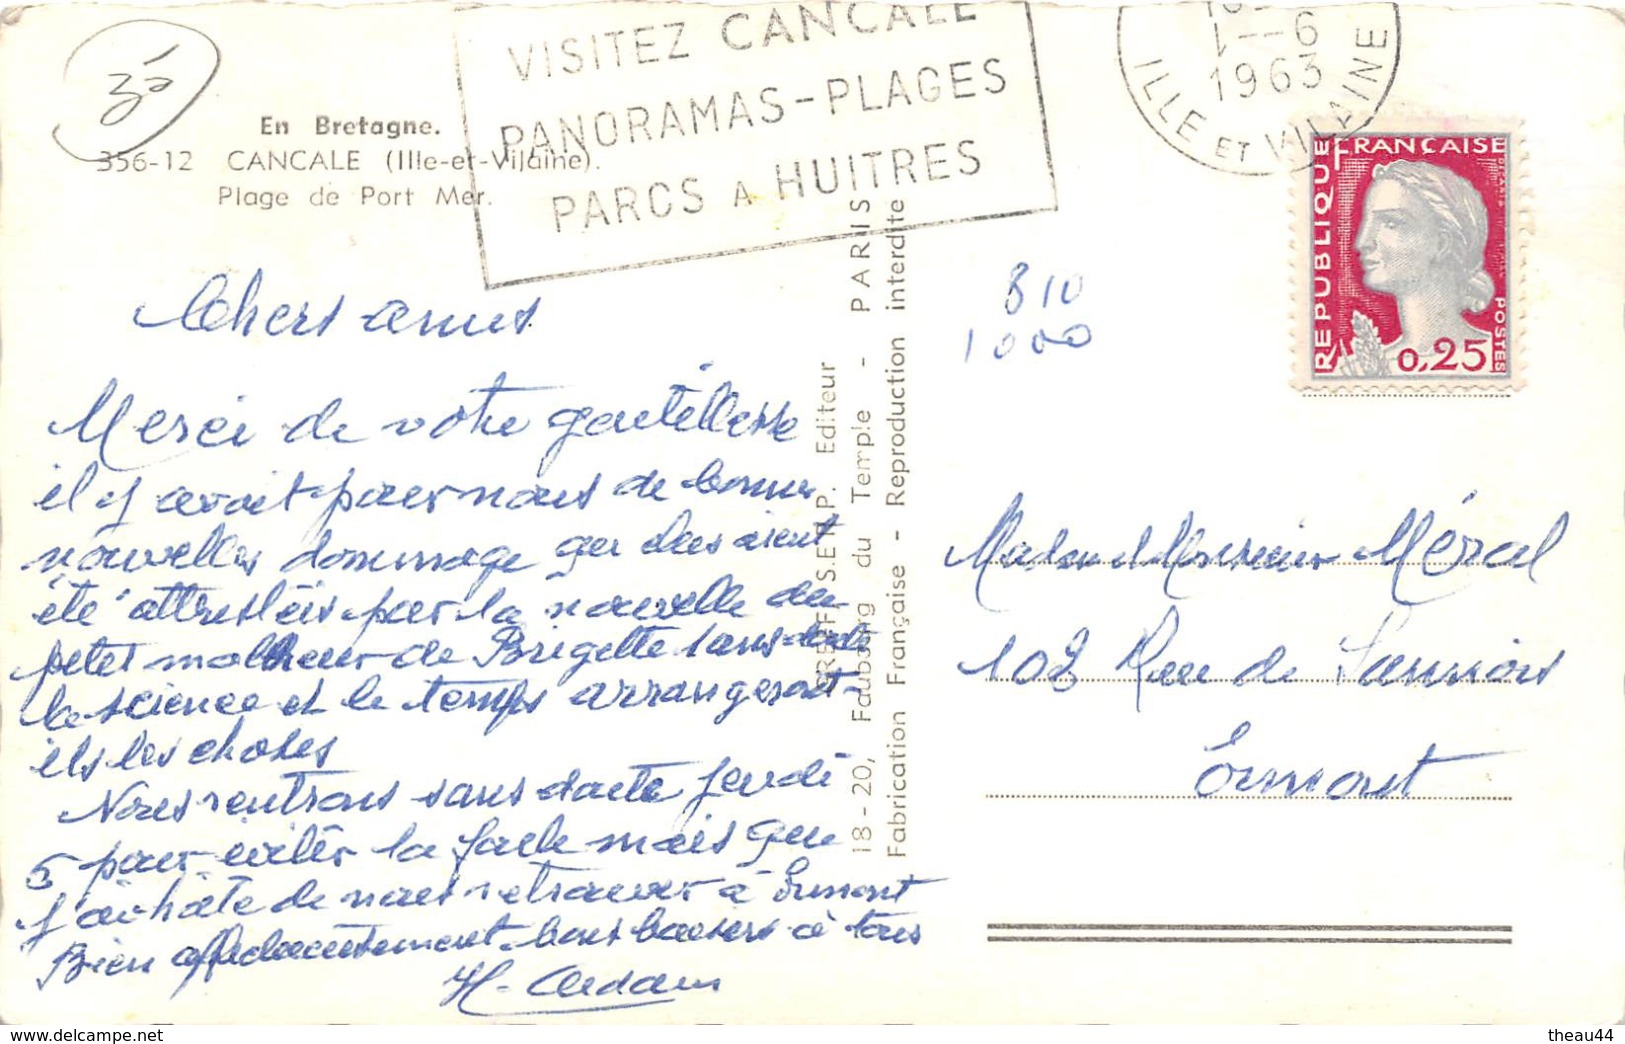 30
En Bretagne.
356-12 CANCALE (Ille-et-Vilaine).
Plage de Port Mer.
VISITEZ CANCALE
PANORAMAS-PLAGES
PARCS A HUITRES
1--6
1963
ILLE ET VILAINE
REPUBLIQUE FRANÇAISE
POSTES
0,25
810
1000
Chers amis
Merci de votre gentillesse
il y avait pour nous de bonnes
nouvelles dommage que elles aient
été attristéis par la nouvelle du
petit malheur de Brigette sans doute
la science et le temps arrangeront-
ils les choses
Nous rentrons sans doute jeudi
pour éviter la foule mais que
j'ai hâte de nous retrouver à Ermont
Bien affectueusement bons baisers à tous
GREFF S.E.N.P. Editeur
18-20, Faubourg du Temple - PARIS
Fabrication Française - Reproduction interdite
Madame et Monsieur Méral
102 Rue de Sannois
Ermont
theau44